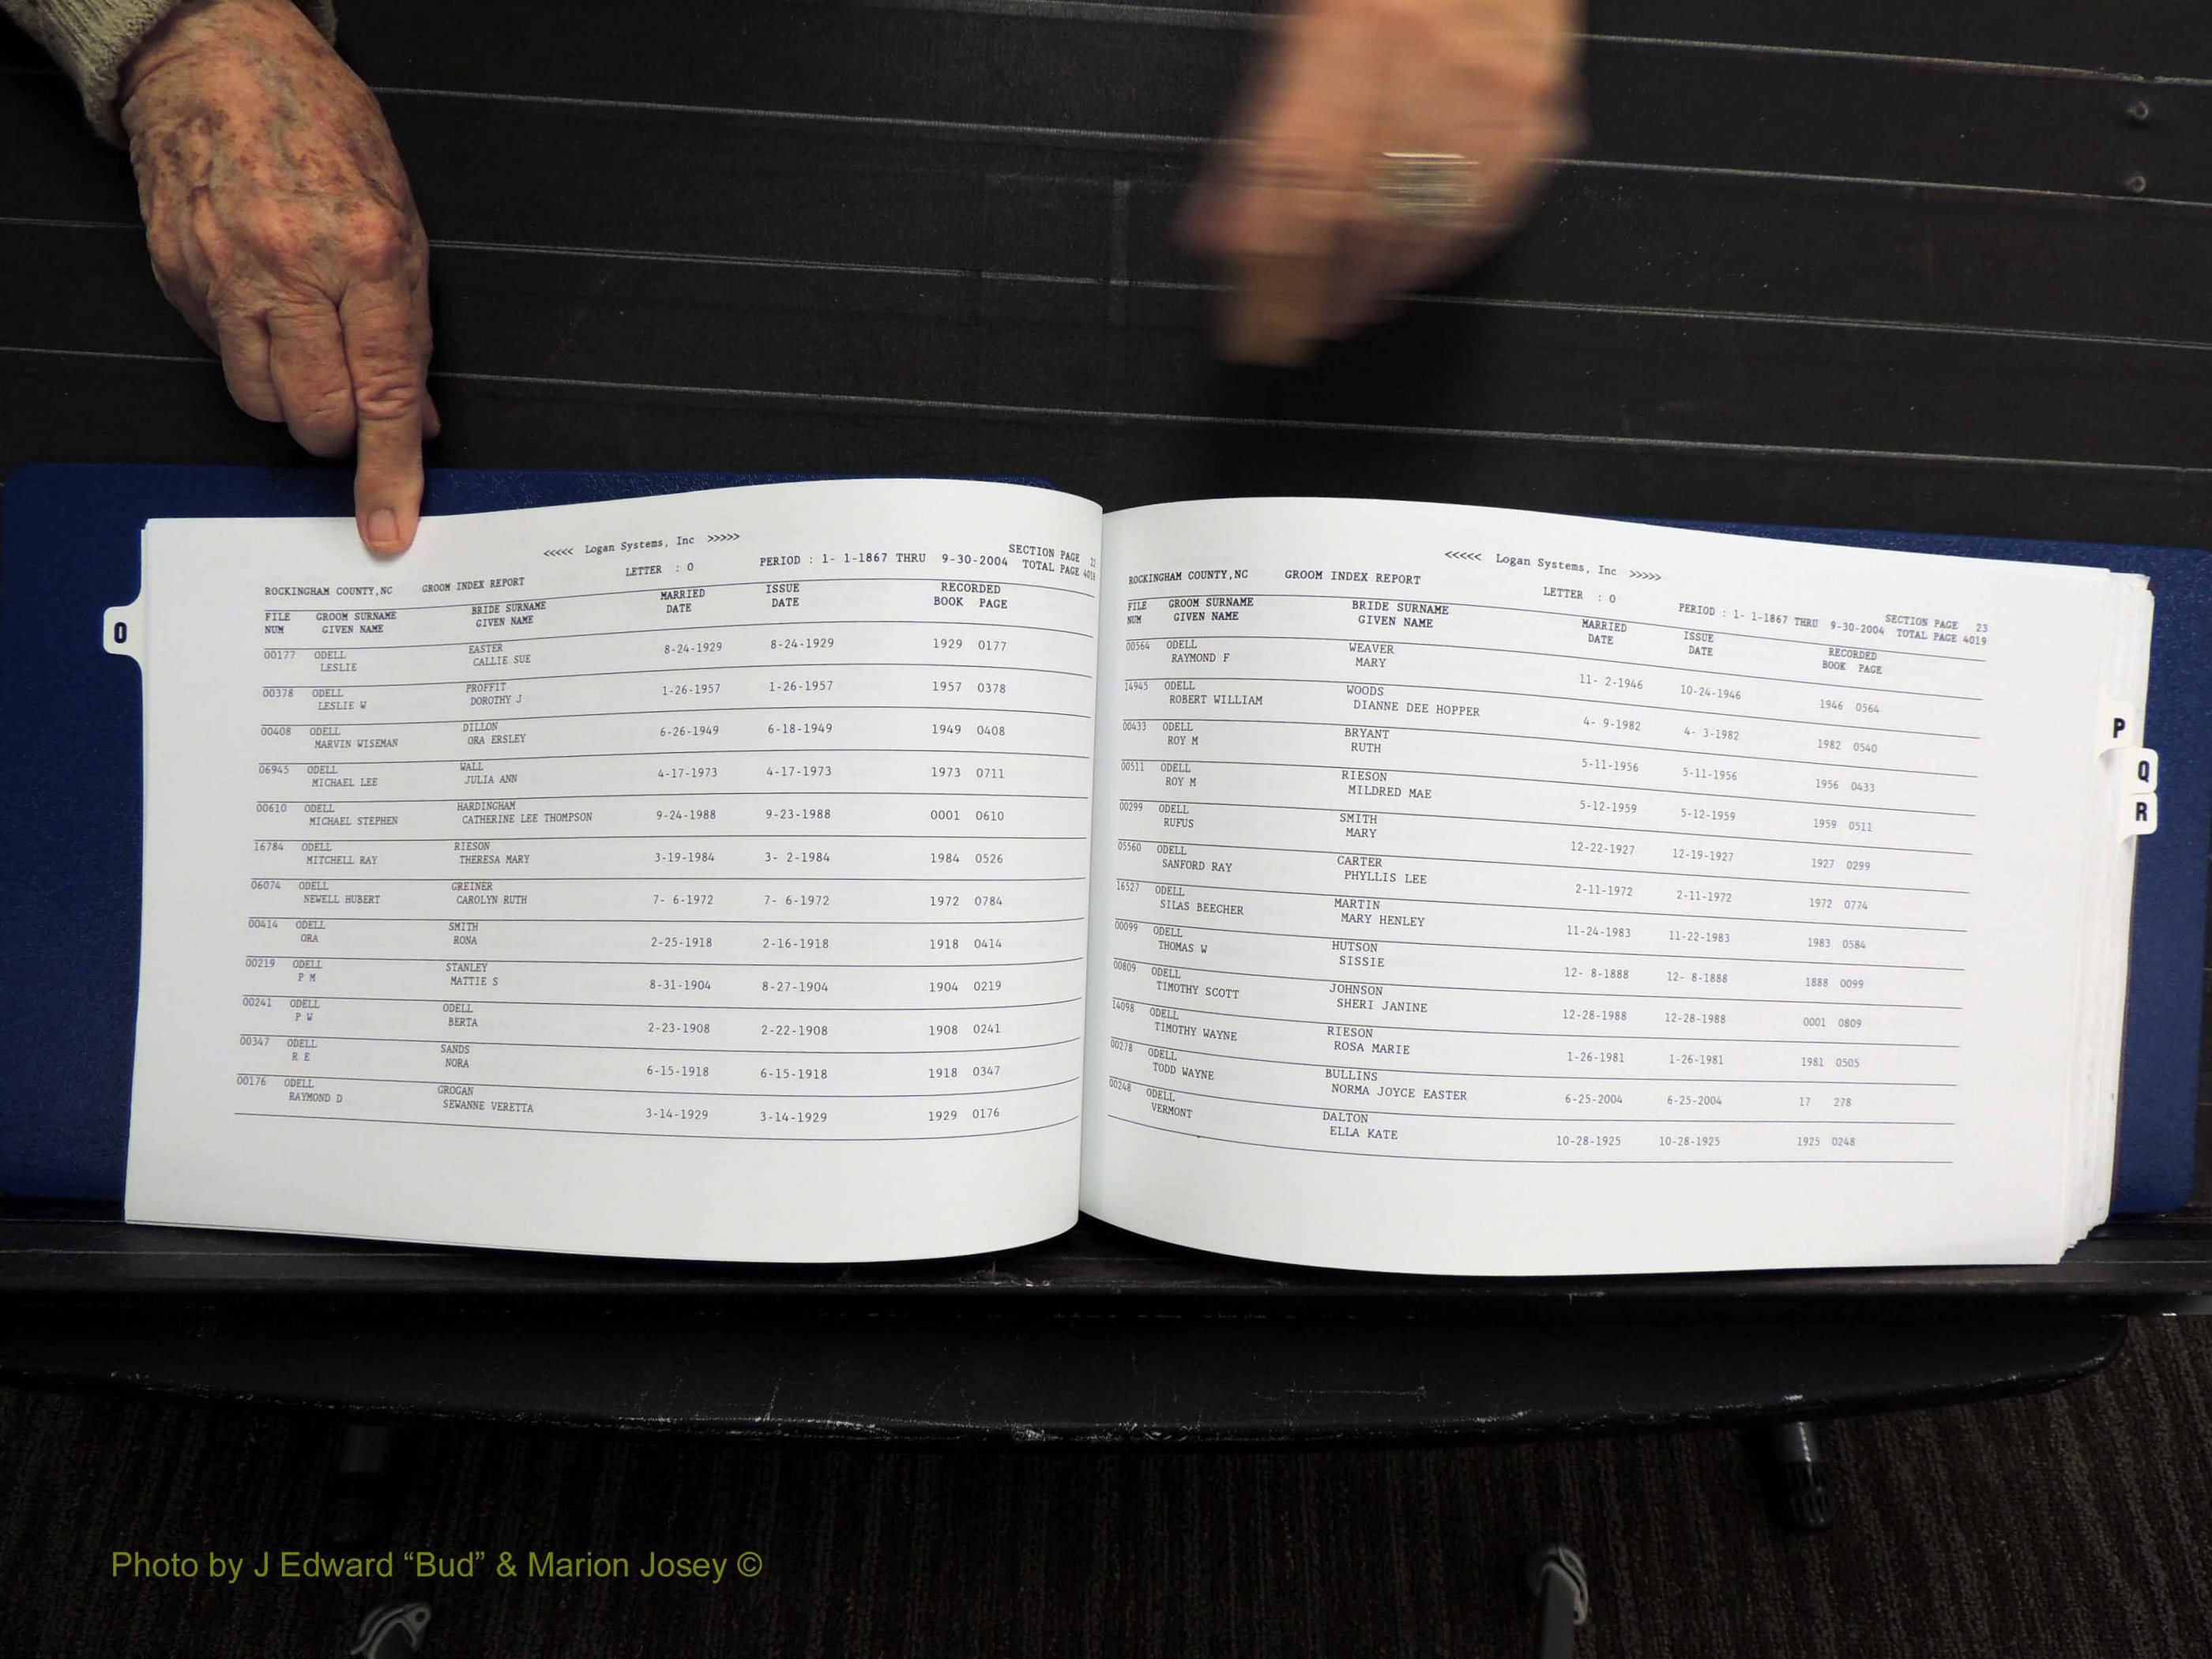 <<<<< Logan Systems, Inc >>>>>
SECTION PAGE
ROCKINGHAM COUNTY,NC GROOM INDEX REPORT LETTER : O PERIOD : 1- 1-1867 THRU 9-30-2004 TOTAL PAGE
FILE GROOM SURNAME BRIDE SURNAME MARRIED ISSUE RECORDED
NUM GIVEN NAME GIVEN NAME DATE DATE BOOK PAGE
00177 ODELL EASTER 8-24-1929 8-24-1929 1929 0177
LESLIE CALLIE SUE
00378 ODELL PROFFIT 1-26-1957 1-26-1957 1957 0378
LESLIE W DOROTHY J
00408 ODELL DILLON 6-26-1949 6-18-1949 1949 0408
MARVIN WISEMAN ORA ERSLEY
06945 ODELL WALL 4-17-1973 4-17-1973 1973 0711
MICHAEL LEE JULIA ANN
00610 ODELL HARDINGHAM 9-24-1988 9-23-1988 0001 0610
MICHAEL STEPHEN CATHERINE LEE THOMPSON
16784 ODELL RIESON 3-19-1984 3- 2-1984 1984 0526
MITCHELL RAY THERESA MARY
06074 ODELL GREINER 7- 6-1972 7- 6-1972 1972 0784
NEWELL HUBERT CAROLYN RUTH
00414 ODELL SMITH 2-25-1918 2-16-1918 1918 0414
ORA RONA
00219 ODELL STANLEY 8-31-1904 8-27-1904 1904 0219
P M MATTIE S
00241 ODELL ODELL 2-23-1908 2-22-1908 1908 0241
P W BERTA
00347 ODELL SANDS 6-15-1918 6-15-1918 1918 0347
R E NORA
00176 ODELL GROGAN 3-14-1929 3-14-1929 1929 0176
RAYMOND D SEWANNE VERETTA
O
<<<<< Logan Systems, Inc >>>>>
SECTION PAGE 23
ROCKINGHAM COUNTY,NC GROOM INDEX REPORT LETTER : O PERIOD : 1- 1-1867 THRU 9-30-2004 TOTAL PAGE 4019
FILE GROOM SURNAME BRIDE SURNAME MARRIED ISSUE RECORDED
NUM GIVEN NAME GIVEN NAME DATE DATE BOOK PAGE
00564 ODELL WEAVER 11- 2-1946 10-24-1946 1946 0564
RAYMOND F MARY
14945 ODELL WOODS 4- 9-1982 4- 3-1982 1982 0540
ROBERT WILLIAM DIANNE DEE HOPPER
00433 ODELL BRYANT 5-11-1956 5-11-1956 1956 0433
ROY M RUTH
00511 ODELL RIESON 5-12-1959 5-12-1959 1959 0511
ROY M MILDRED MAE
00299 ODELL SMITH 12-22-1927 12-19-1927 1927 0299
RUFUS MARY
05560 ODELL CARTER 2-11-1972 2-11-1972 1972 0774
SANFORD RAY PHYLLIS LEE
16527 ODELL MARTIN 11-24-1983 11-22-1983 1983 0584
SILAS BEECHER MARY HENLEY
00099 ODELL HUTSON 12- 8-1888 12- 8-1888 1888 0099
THOMAS W SISSIE
00809 ODELL JOHNSON 12-28-1988 12-28-1988 0001 0809
TIMOTHY SCOTT SHERI JANINE
14098 ODELL RIESON 1-26-1981 1-26-1981 1981 0505
TIMOTHY WAYNE ROSA MARIE
00278 ODELL BULLINS 6-25-2004 6-25-2004 17 278
TODD WAYNE NORMA JOYCE EASTER
00248 ODELL DALTON 10-28-1925 10-28-1925 1925 0248
VERMONT ELLA KATE
P
Q
R
Photo by J Edward “Bud” & Marion Josey ©